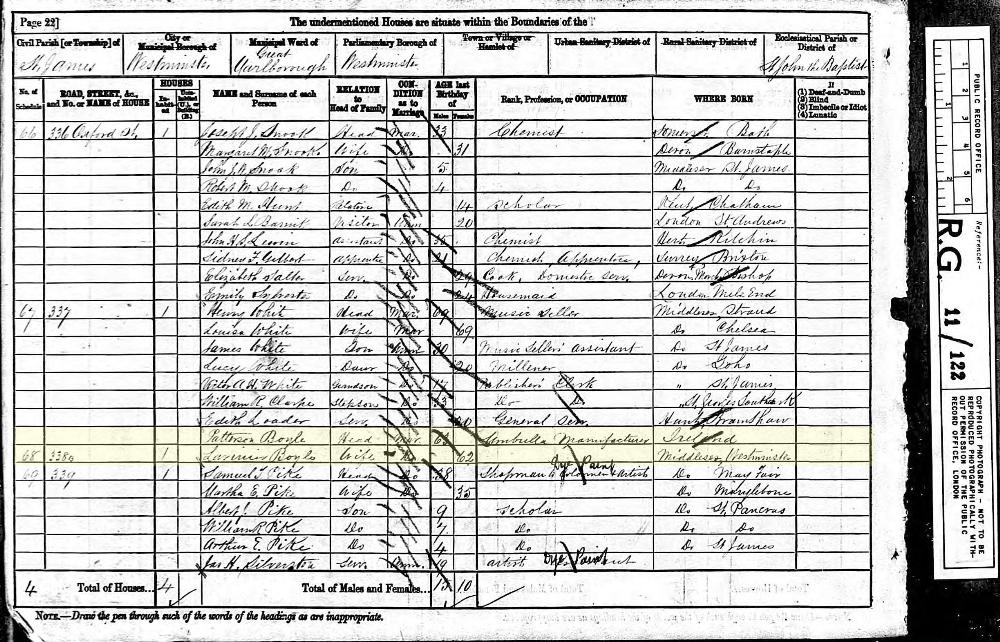 Page 22]
The undermentioned Houses are situate within the Boundaries of the
Civil Parish [or Township] of
City or Municipal Borough of
Municipal Ward of
Parliamentary Borough of
Town or Village or Hamlet of
Urban Sanitary District of
Rural Sanitary District of
Ecclesiastical Parish or District of
St James
Westminster
Great Marlborough
Westminster
St John the Baptist
No. of Schedule
ROAD, STREET, &c., and No. or NAME of HOUSE
HOUSES
NAME and Surname of each Person
RELATION to Head of Family
CONDITION as to Marriage
AGE last Birthday of
Males
Females
Rank, Profession, or OCCUPATION
WHERE BORN
If
(1) Deaf-and-Dumb
(2) Blind
(3) Imbecile or Idiot
(4) Lunatic
66 336 Oxford St, 1 Joseph J. Snook Head Mar. 33 Chemist Somerset Bath
Margaret M. Snook Wife Do 31 Devon Barnstaple
John J. W. Snook Son 5 Middlesex St. James
Robert M. Snook Do 4 Do Do
Edith M. Hunt 14 Scholar Kent Chatham
Sarah Visitor Unm 20 London St Andrews
John Assistant Do Chemist Herts Hitchin
Sidney F. Gilbert Apprentice Do 21 Chemist, Apprentice, Surrey Brixton
Elizabeth Salter Serv. Do Cook, Domestic Serv. Devon
Emily Do Do Housemaid London Mile End
67 337 1 Henry Whit Head Mar. 69 Music Seller Middlesex Strand
Louisa White Wife Mar 69 Do Chelsea
James White Son Unm 30 Music Sellers assistant Do St James
Lucy White Daur Do 20 Milliner Do Soho
White Grandson Do Publishers Clerk " St James
William R. Clarke Stepson Do Do Do " St Georges Southwark
Edith Loader Serv. Do 20 General Serv. Hants
Patterson Boyle Head Mar Umbrella Manufacturer Ireland
68 338a Boyle Wife Do 62 Middlesex Westminster
69 339 1 Samuel T. Pike Head Do 38 Shopman to Colourmen & Artists Do May Fair
Dye/Paint
Martha E. Pike Wife Do 35 Do Marylebone
Albert Pike Son 9 Scholar Do St. Pancras
William R. Pike Do 7 Do Do Do
Arthur E. Pike Do 4 Do Do St James
Jas H. Silverston Serv. Unm. 19 artist Dye/Paint
4 Total of Houses... 4 Total of Males and Females... 15 10
NOTE.—Draw the pen through such of the words of the headings as are inappropriate.
PUBLIC RECORD OFFICE
1 2 3 4 5 6
Reference:-
R.G. 11/122
COPYRIGHT PHOTOGRAPH - NOT TO BE REPRODUCED PHOTOGRAPHICALLY WITHOUT PERMISSION OF THE PUBLIC RECORD OFFICE, LONDON